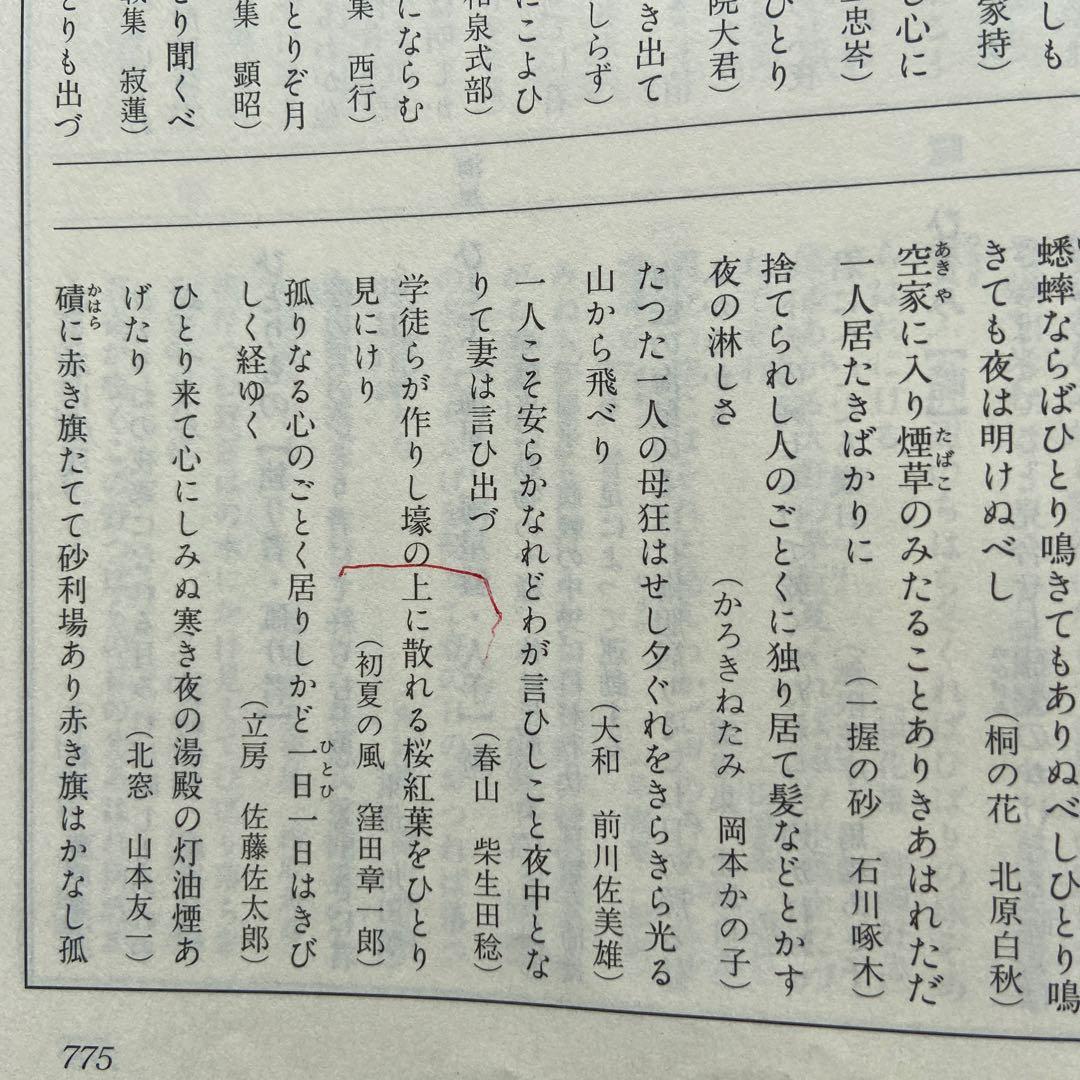 しも
家持）
し心に
忠岑）
ひとり
院大君）
き出て
しらず）
にこよひ
和泉式部）
にならむ
集　西行）
とりぞ月
集　顕昭）
り聞くべ
載集　寂蓮）
とりも出づ
蟋蟀ならばひとり鳴きてもありぬべしひとり鳴
きても夜は明けぬべし　（桐の花　北原白秋）
空家に入り煙草のみたることありきあはれただ
あきや
たばこ
一人居たきばかりに　（一握の砂　石川啄木）
捨てられし人のごとくに独り居て髪などとかす
夜の淋しさ　（かろきねたみ　岡本かの子）
たつた一人の母狂はせし夕ぐれをきらきら光る
山から飛べり　（大和　前川佐美雄）
一人こそ安らかなれどわが言ひしこと夜中とな
りて妻は言ひ出づ　（春山　柴生田稔）
学徒らが作りし壕の上に散れる桜紅葉をひとり
見にけり　（初夏の風　窪田章一郎）
孤りなる心のごとく居りしかど一日一日はきび
ひとひ
しく経ゆく　（立房　佐藤佐太郎）
ひとり来て心にしみぬ寒き夜の湯殿の灯油煙あ
げたり　（北窓　山本友一）
磧に赤き旗たてて砂利場あり赤き旗はかなし孤
かはら
775